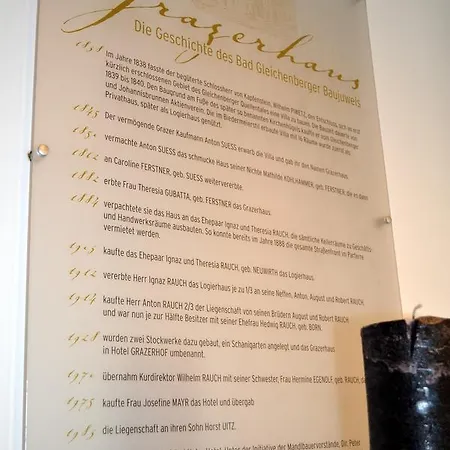 Grazerhaus
Die Geschichte des Bad Gleichenberger Baujuwels
1838 Im Jahre 1838 fasste der begüterte Schlossherr von Kapfenstein, Wilhelm PIRETZ, den Entschluss, sich im erst
kürzlich erschlossenen Gebiet des Gleichenberger Quellentales eine Villa zu bauen. Die Bauzeit dauerte von
1839 bis 1840. Den Baugrund am Fuße des später so benannten Kirchenhügels kaufte er vom Gleichenberger
und Johannisbrunnen Aktienverein. Die im Biedermeierstil erbaute Villa mit 14 Räume wurde zuerst als
Privathaus, später als Logierhaus genützt.
1845 Der vermögende Grazer Kaufmann Anton SUESS erwarb die Villa und gab ihr den Namen Grazerhaus.
vermachte Anton SUESS das schmucke Haus seiner Nichte Mathilde KOHLHAMMER, geb. FERSTNER, die es dann
an Caroline FERSTNER, geb. SUESS weitervererbte.
1882 erbte Frau Theresia GUBATTA, geb. FERSTNER das Grazerhaus.
1884 verpachtete sie das Haus an das Ehepaar Ignaz und Theresia RAUCH, die sämtliche Kellerräume zu Geschäfts-
und Handwerksräume ausbauten. So konnte bereits im Jahre 1888 die gesamte Straßenfront im Parterre
vermietet werden.
1903 kaufte das Ehepaar Ignaz und Theresia RAUCH, geb. NEUWIRTH das Logierhaus.
1912 vererbte Herr Ignaz RAUCH das Logierhaus je zu 1/3 an seine Neffen, Anton, August und Robert RAUCH.
1914 kaufte Herr Anton RAUCH 2/3 der Liegenschaft von seinen Brüdern August und Robert RAUCH
und war nun je zur Hälfte Besitzer mit seiner Ehefrau Hedwig RAUCH, geb. BORN.
1928 wurden zwei Stockwerke dazu gebaut, ein Schanigarten angelegt und das Grazerhaus
in Hotel GRAZERHOF umbenannt.
1970 übernahm Kurdirektor Wilhelm RAUCH mit seiner Schwester, Frau Hermine EGENOLF, geb. RAUCH, da
1975 kaufte Frau Josefine MAYR das Hotel und übergab
1983 die Liegenschaft an ihren Sohn Horst UITZ.
Hotel. Unter der Initiative der Mandlbauervorstände, Dir. Peter